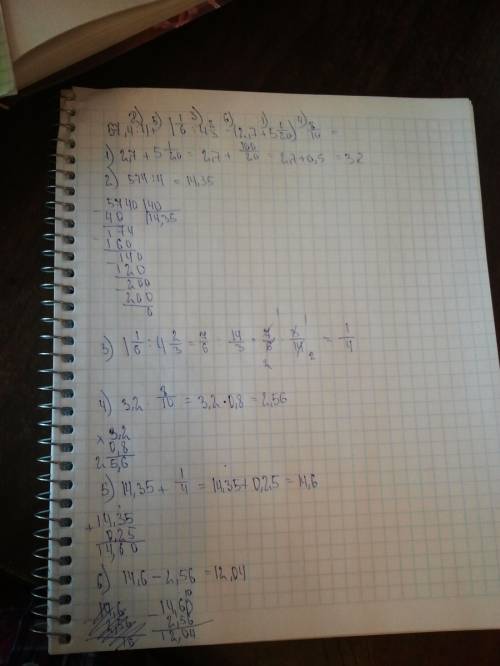 57,4:4+ 1 1/6 : 4 2/3 - (2,7+5 1/20) 8/10 =
1) 2,7 + 5 1/20 = 2,7 + 100/20 = 2,7+0,5 = 3,2
2) 57,4:4 = 14,35
- 5740 |40
40 |14,35
174
- 160
140
- 120
200
- 200
0
3) 1 1/6 : 4 2/3 = 7/6 : 14/3 = 7/6 · 3/14 = 1/4
4) 3,2 · 8/10 = 3,2·0,8 = 2,56
× 3,2
0,8
2 5,6
5) 14,35 + 1/4 = 14,35+0,25 = 14,6
+ 14,35
0,25
14,60
6) 14,6 - 2,56 = 12,04
- 14,60
2,56
12,04